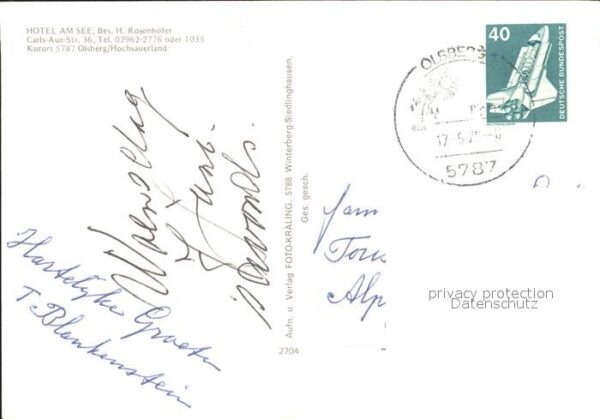 HOTEL AM SEE, Bes. H. Rosenhöfer
Carls-Aue-Str. 36, Tel. 02962-2776 oder 1035
Kurort 5787 Olsberg/Hochsauerland
Woensdag
7 Juni
'savonds.
Hartelijke Groeten
T. Blankenstein
Aufn. u. Verlag FOTO-KRÄLING, 5788 Winterberg-Siedlinghausen,
Ges. gesch.
2704
40
DEUTSCHE BUNDESPOST
OLSBERG 1
5787
Fam
Alp
privacy protection
Datenschutz